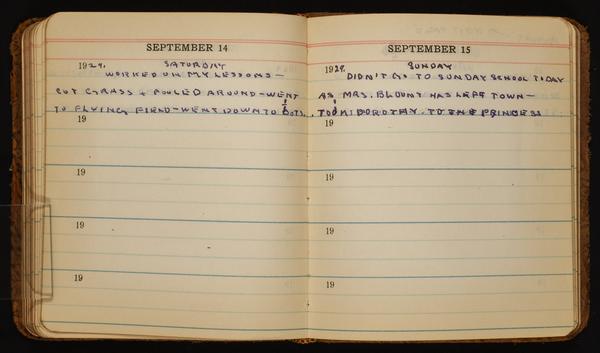 SEPTEMBER 14
1929. SATURDAY
WORKED ON MY LESSONS—
CUT GRASS & FOOLED AROUND—WENT
TO FLYING FIELD—WENT DOWN TO DOTS.
19
19
19
19
SEPTEMBER 15
1929. SUNDAY
DIDN'T GO TO SUNDAY SCHOOL TODAY
AS MRS. BLOUNT HAS LEFT TOWN—
TOOK DOROTHY. TO THE PRINCESS
19
19
19
19